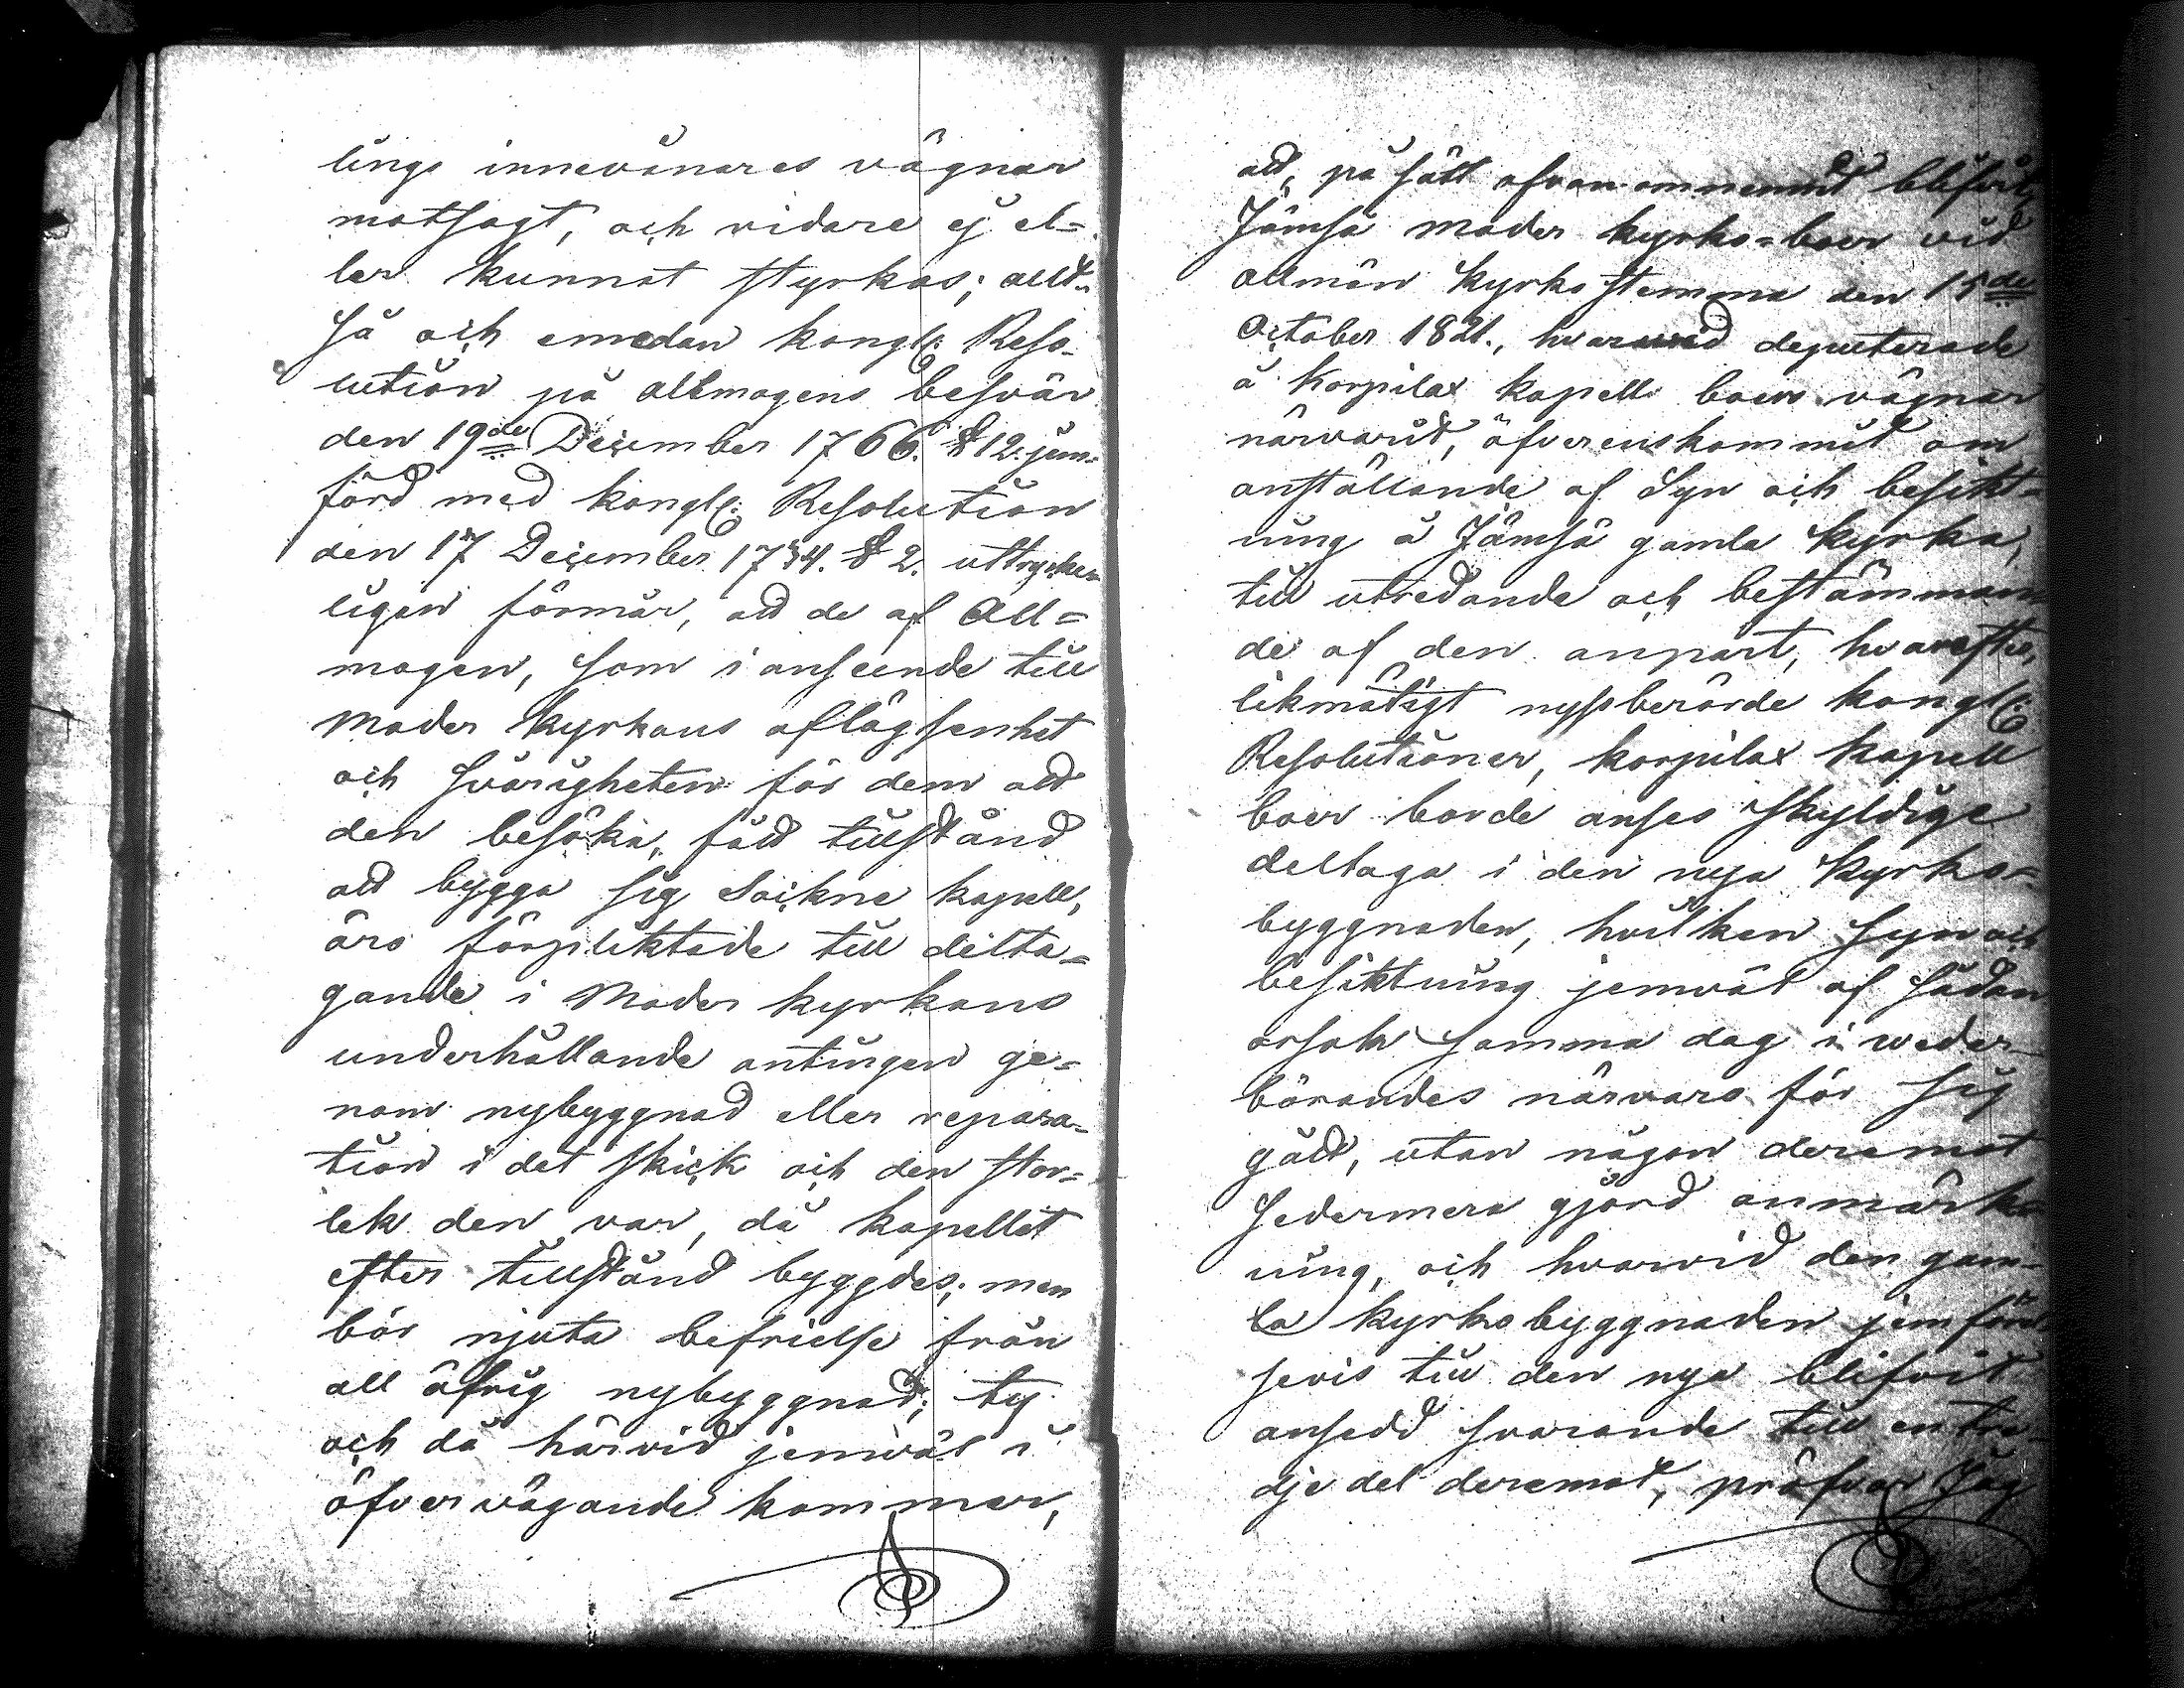 lings innevånares vägnar
motsagt, och vidare ej el=
ler kunnat styrkas; allt=
så och emedan kongl: Reso-
lution på allmogens besvär
den 19de December 1766. § 12. jem=
förd med kongl: Resolution
den 17 December 1734. § 2. uttrycke=
ligen förmår, att de af All=
mogen, som i anseende till
Moder kyrkans aflägsenhet
och svårigheten för dem att
den besöka, fått tillstånd
att bygga sig Sockne kapell,
äro förpliktade till delta=
gande i Moder kyrkans
underhållande antingen ge=
nom nybyggnad eller repara=
tion i det skick och den stor=
lek den var, då kapellet
efter tillstånd byggdes; men
bör njuta befrielse från
all öfrig nybyggnad; ty
och då härvid jemväl i
öfvervägande kommer,
att, på sätt ofvan omnemnt blifvit,
Jämsä Moder kyrko=boer vid
allmän kyrkostemma den 15de
October 1821., hvarvid deputerade
å Korpilax kapells boers vägnar
närvarit, öfverenskommit om
anställande af Syn och besikt=
ning å Jämsä gamla kyrka,
till utredande och bestämman
de af den anpart, hvarefter,
likmätigt nyssberörde kongl:
Resolutioner, korpilax kapell
boer borde anses skyldige
deltaga i den nya kyrko=
byggnaden, hvilken syn och
besiktning jemväl af sådan
orsak samma dag i weder=
börandes närvaro för sig
gått, utan någon deremot
sedermera gjord anmärk=
ning, och hvarvid den gam-
la kyrkobyggnaden jemförel
sevis till den nya blifvit
ansedd svarande till en tre-
dje del deremot, pröfvar Jag